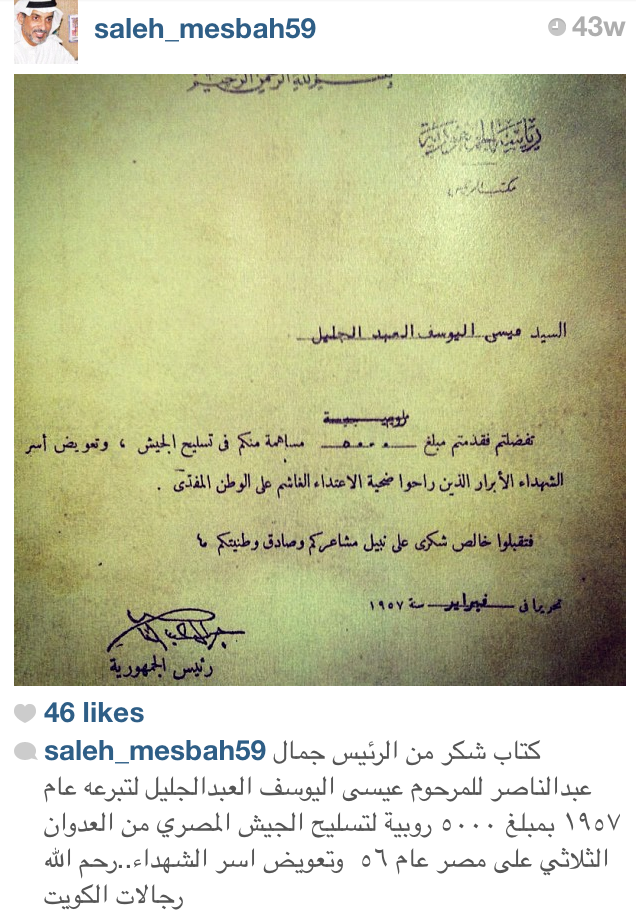 saleh_mesbah59
43w
بسم الله الرحمن الرحيم
رياسة الجمهورية
مكتب الرئيس
السيد عيسى اليوسف العبد الجليل
روبيـــة
تفضلتم فقدمتم مبلغ ٥٠٠٠ مساهمة منكم فى تسليح الجيش ، وتعويض أسر
الشهداء الأبرار الذين راحوا ضحية الاعتداء الغاشم على الوطن المفدّى .
فتقبلوا خالص شكرى على نبيل مشاعركم وصادق وطنيتكم
تحريرا فى فبراير سنة ١٩٥٧
رئيس الجمهورية
46 likes
saleh_mesbah59 كتاب شكر من الرئيس جمال
عبدالناصر للمرحوم عيسى اليوسف العبدالجليل لتبرعه عام
١٩٥٧ بمبلغ ٥٠٠٠ روبية لتسليح الجيش المصري من العدوان
الثلاثي على مصر عام ٥٦ وتعويض اسر الشهداء..رحم الله
رجالات الكويت